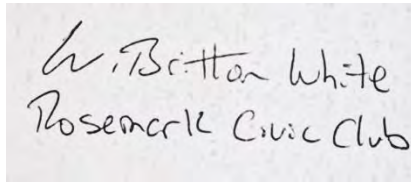 W. Britton White
Rosemark Civic Club